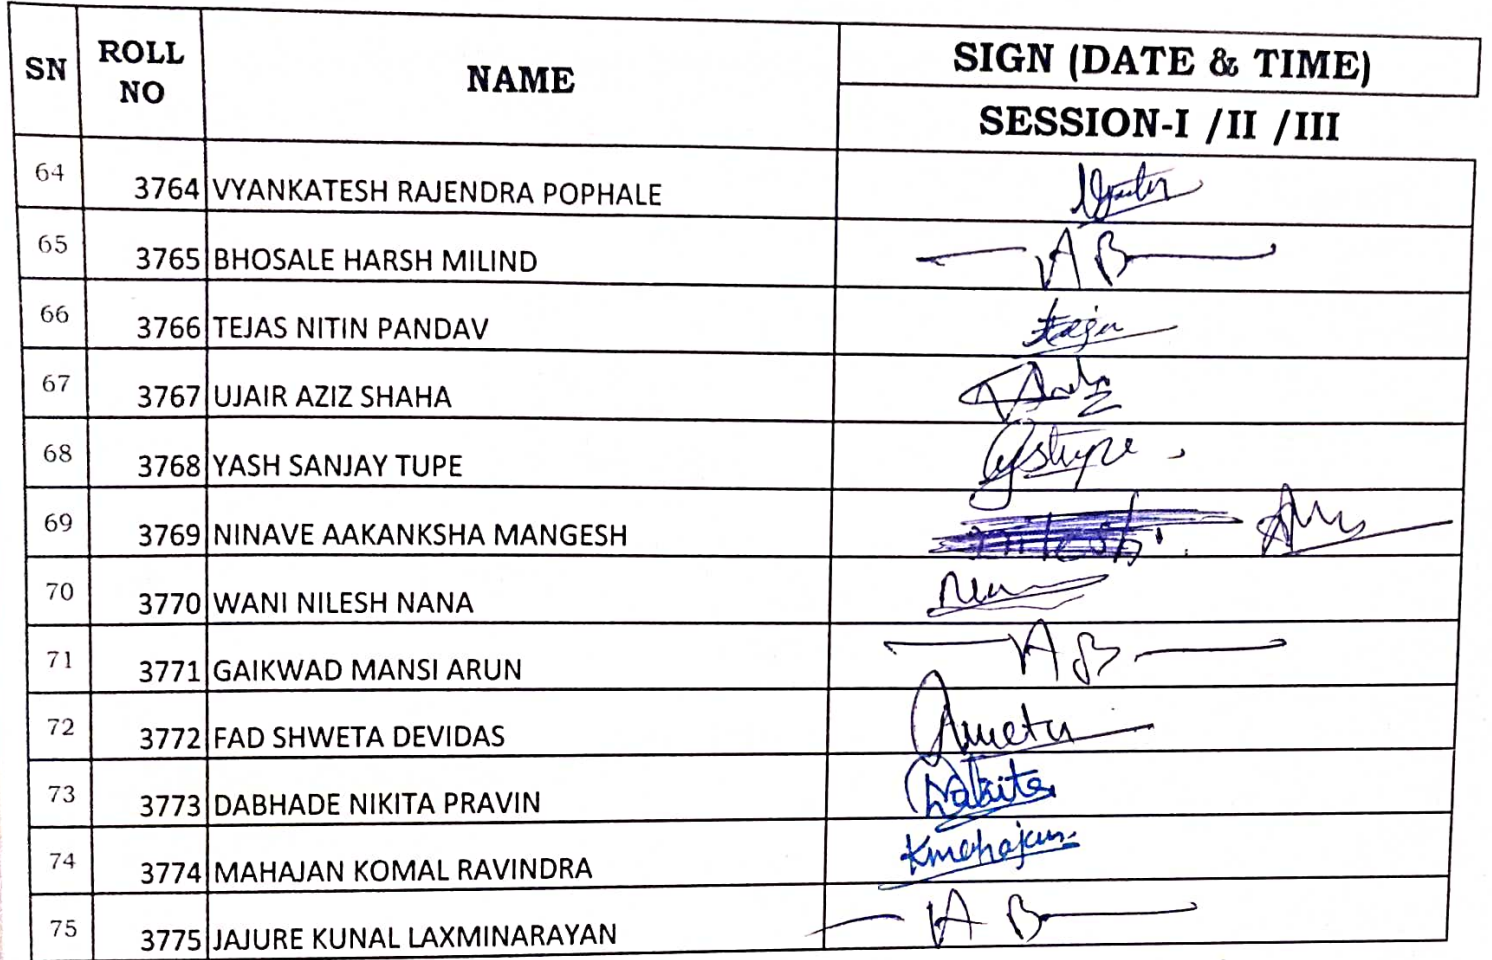 SN ROLL NO NAME SIGN (DATE & TIME)
SESSION-I /II /III
64 3764 VYANKATESH RAJENDRA POPHALE
65 3765 BHOSALE HARSH MILIND — A B —
66 3766 TEJAS NITIN PANDAV
67 3767 UJAIR AZIZ SHAHA
68 3768 YASH SANJAY TUPE
69 3769 NINAVE AAKANKSHA MANGESH
70 3770 WANI NILESH NANA
71 3771 GAIKWAD MANSI ARUN — A B —
72 3772 FAD SHWETA DEVIDAS
73 3773 DABHADE NIKITA PRAVIN
74 3774 MAHAJAN KOMAL RAVINDRA Kmahajan
75 3775 JAJURE KUNAL LAXMINARAYAN — A B —